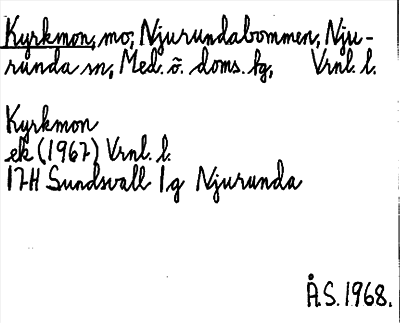 Kyrkmon, mo, Njurundabommen, Nju-
runda sn, Med. ö. doms. fg, Vrnl. l.
Kyrkmon
ek (1967) Vrnl. l.
17H Sundsvall 1g Njurunda
Å.S. 1968.